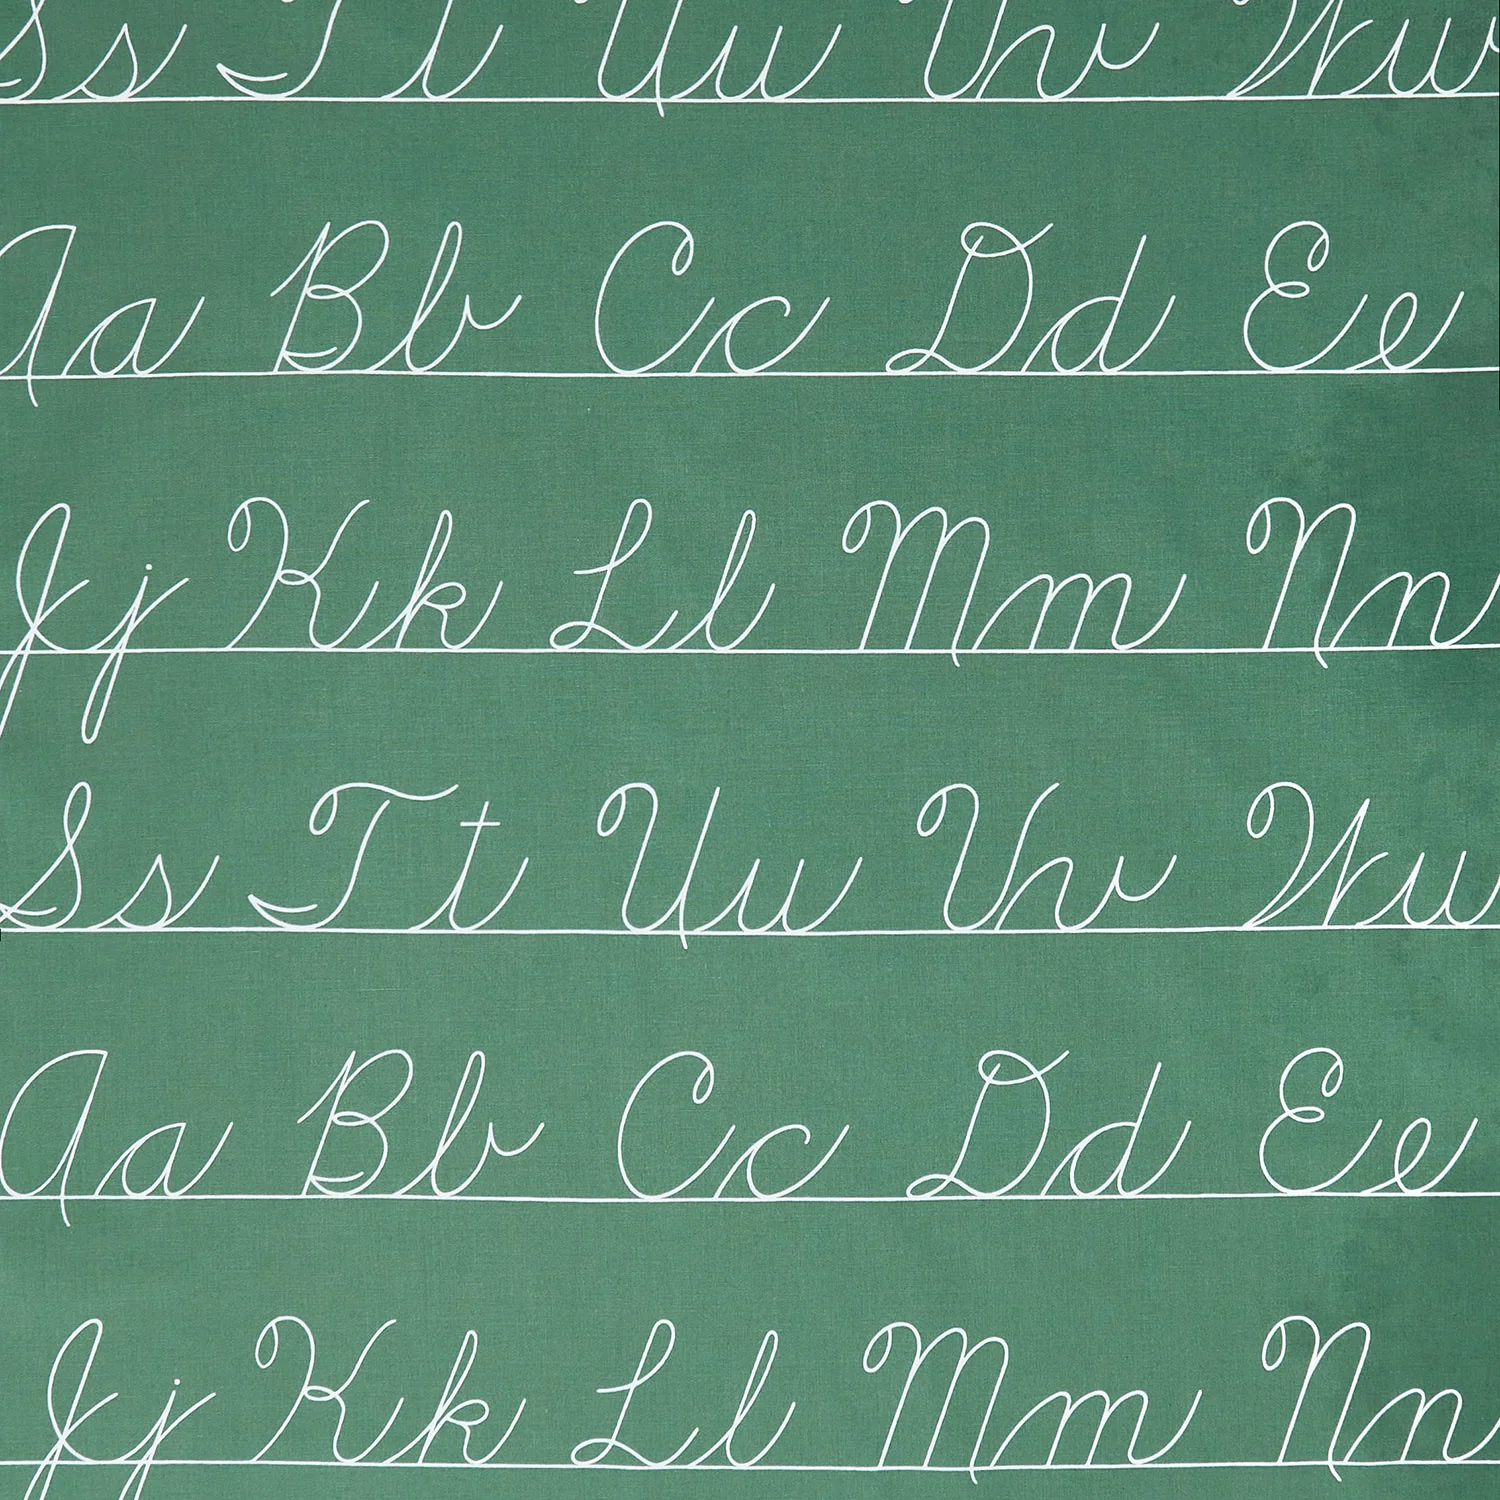 Ss Tt Uu Vv Ww
Aa Bb Cc Dd Ee
Jj Kk Ll Mm Nn
Ss Tt Uu Vv Ww
Aa Bb Cc Dd Ee
Jj Kk Ll Mm Nn